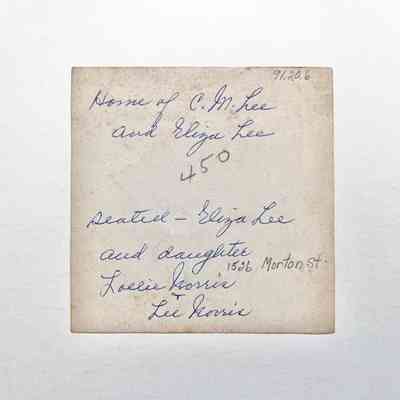 91.20.6
Home of C. M. Lee
and Eliza Lee
450
seated – Eliza Lee
and daughter
1526 Morton St.
Norris
Lee Norris